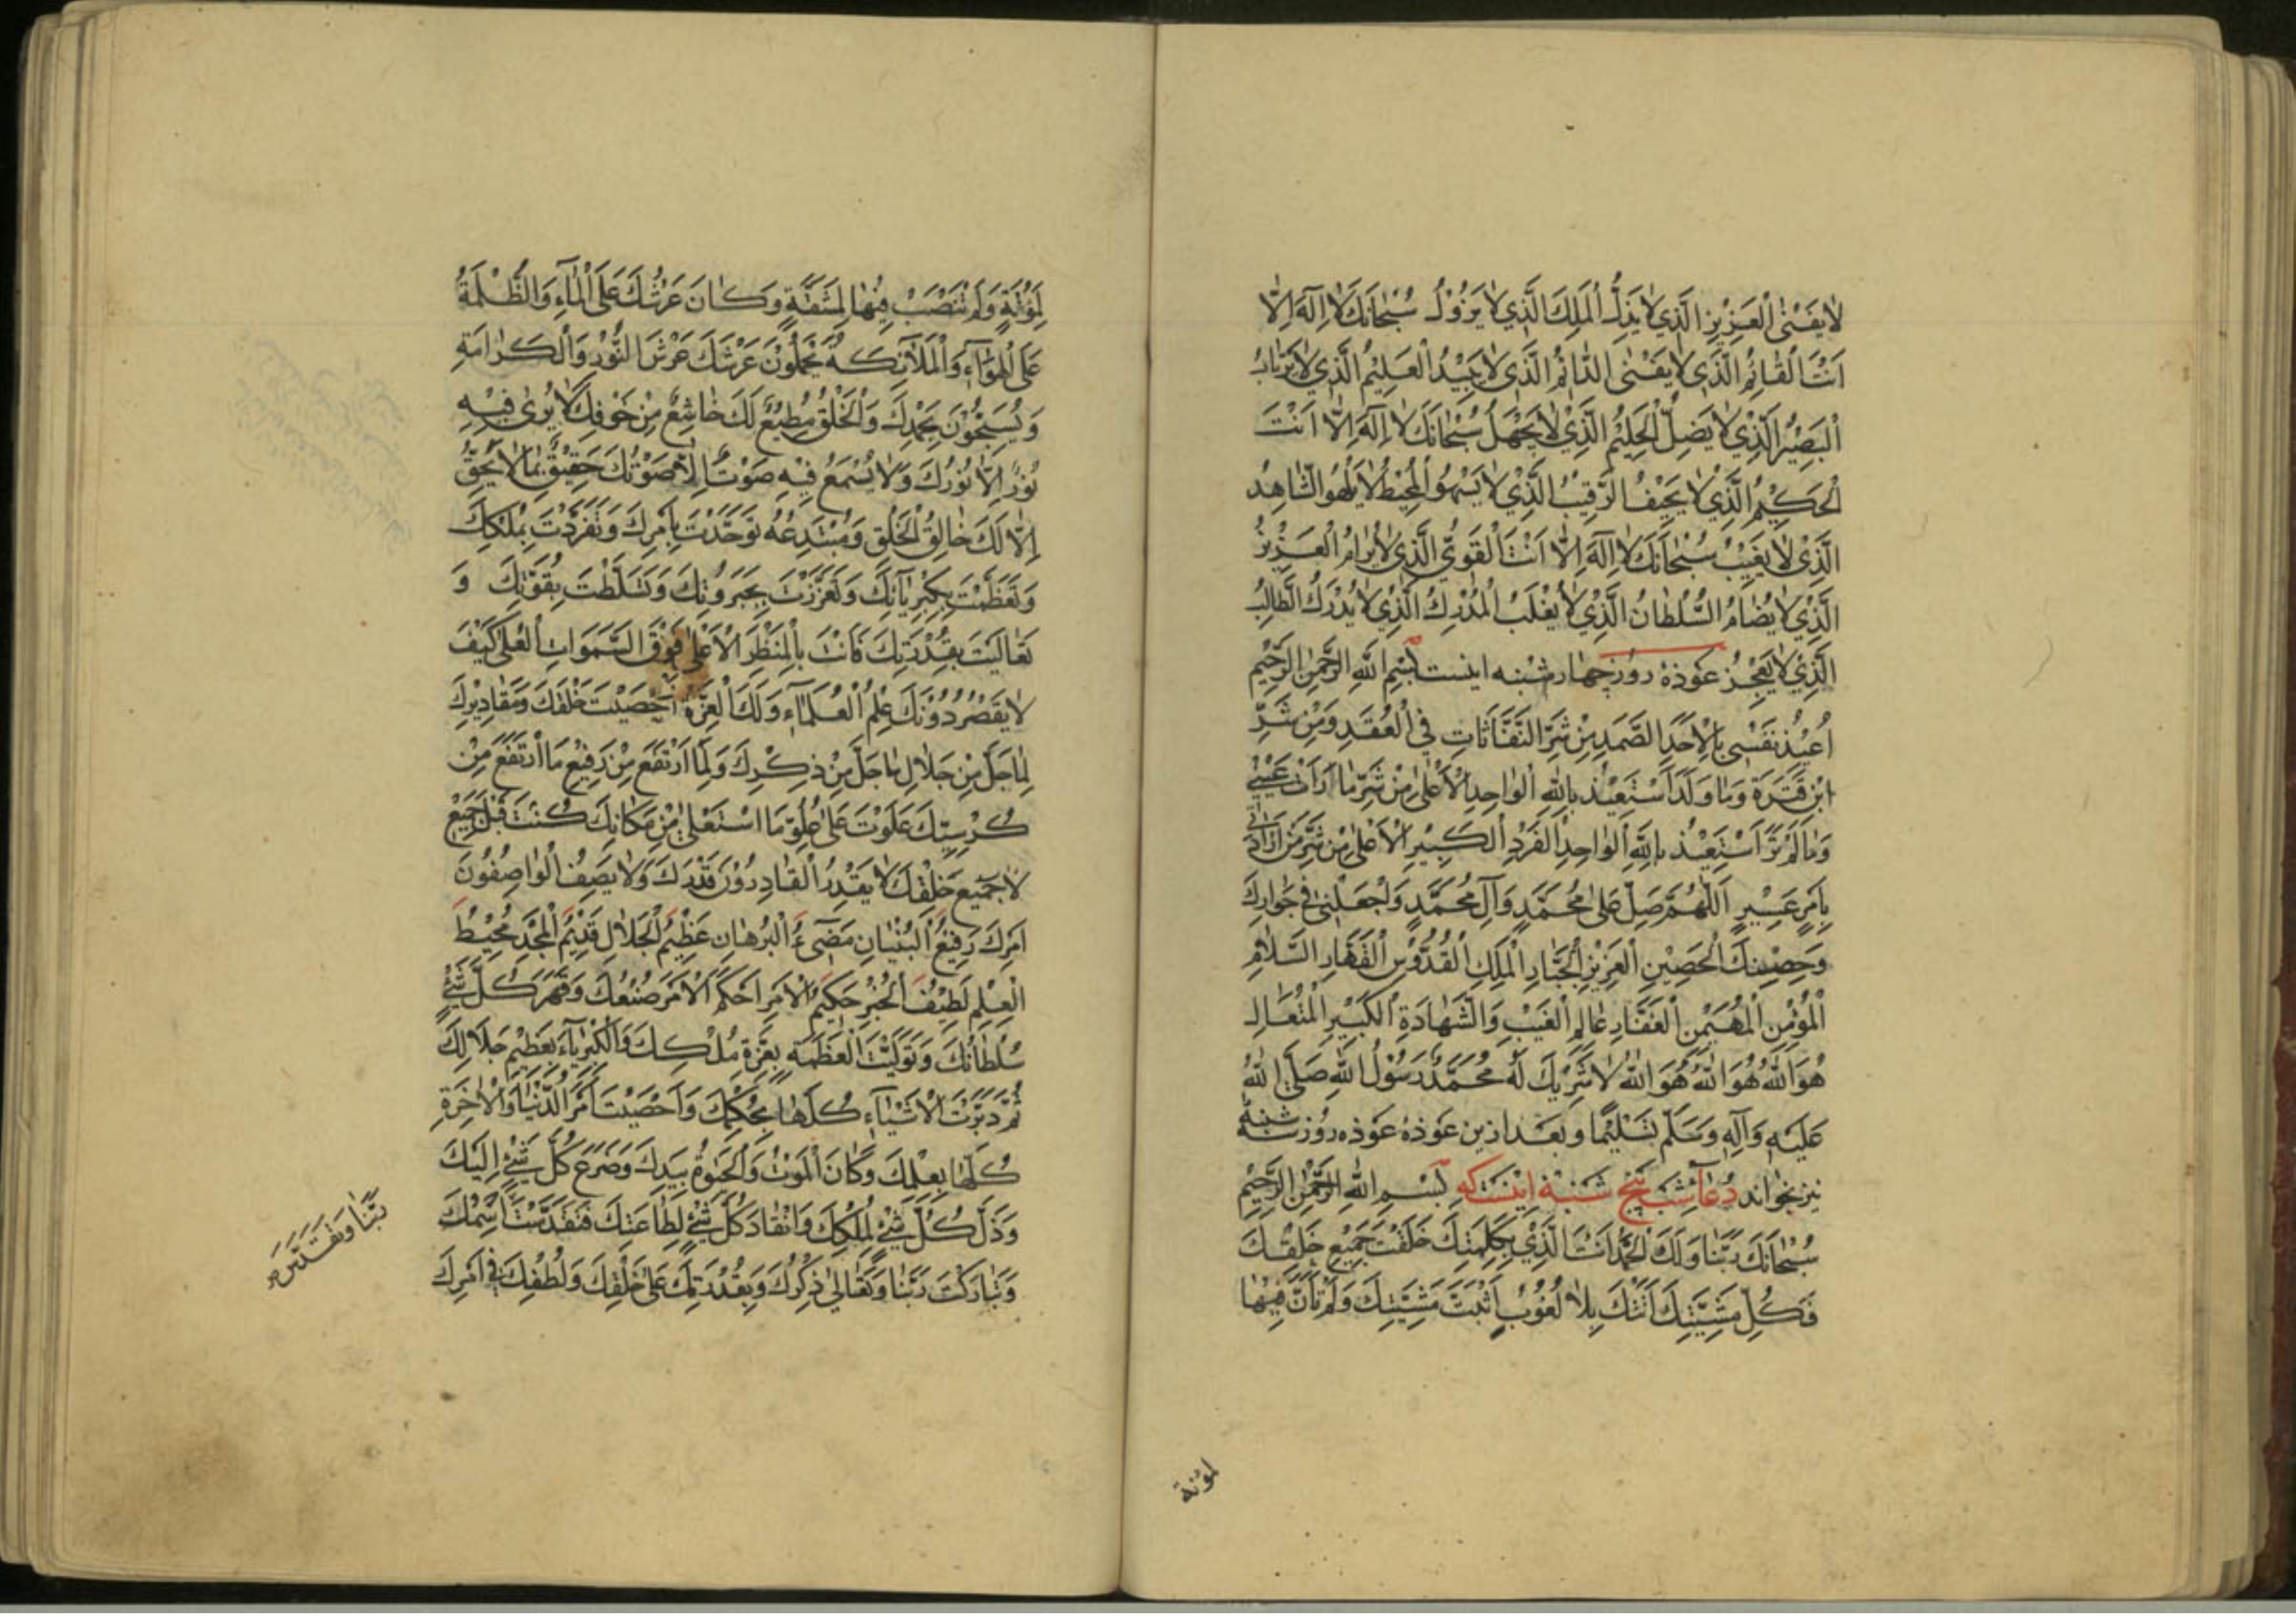 لا يَفْنىٰ الْعَزِيزِ الَّذِي لا يَذِلُّ الْمَلِكَ الَّذِي لا يَزُولُ سُبْحانَكَ لا اِلٰهَ اِلّا
اَنْتَ الْقٰائِمُ الَّذِي لا يَفْنىٰ الدّٰائِمُ الَّذِي لا يَبِيْدُ الْعَلِيْمُ الَّذِي لا يَرْتٰابُ
الْبَصِيْرُ الَّذِي لا يَضِلُّ الْحَلِيْمُ الَّذِيْ لا يَجْهَلُ سُبْحٰانَكَ لا اِلٰهَ اِلّا اَنْتَ
الْحَكِيْمُ الَّذِي لا يَحِيْفُ الرَّقِيْبُ الَّذِيْ لا يَسْهُو الْمُحِيْطُ لا يَلْهُو الشّٰاهِدُ
الَّذِيْ لا يَغِيْبُ سُبْحٰانَكَ لا اِلٰهَ اِلّا اَنْتَ الْقَوِيُّ الَّذِي لا يُرٰامُ الْعَزِيْزُ
الَّذِيْ لا يُضٰامُ السُّلْطٰانُ الَّذِيْ لا يُغْلَبُ الْمُدْرِكُ الَّذِيْ لا يُدْرَكُ الطّٰالِبُ
الَّذِيْ لا يَعْجِزُ عوذهٔ روز چهارشنبه اینست بِسْمِ اللهِ الرَّحْمٰنِ الرَّحِيْمِ
اُعِيْذُ نَفْسِي بِالْاَحَدِ الصَّمَدِ مِنْ شَرِّ النَّفّٰاثٰاتِ فِي الْعُقَدِ وَمِنْ شَرِّ
ابْنِ قَتَرَةَ وَمٰا وَلَدَ اَسْتَعِيْذُ بِاللهِ الْوٰاحِدِ الْاَعْلىٰ مِنْ شَرِّ مٰا رَاَتْ عَيْنِيْ
وَمٰا لَمْ تَرَ اَسْتَعِيْذُ بِاللهِ الْوٰاحِدِ الْفَرْدِ الْكَبِيْرِ الْاَعْلىٰ مِنْ شَرِّ مَنْ اَرٰادَنِي
بِاَمْرٍ عَسِيْرٍ اَللّٰهُمَّ صَلِّ عَلىٰ مُحَمَّدٍ وَآلِ مُحَمَّدٍ وَاجْعَلْنِي فِي جِوٰارِكَ
وَحِصْنِكَ الْحَصِيْنِ الْعَزِيْزِ الْجَبّٰارِ الْمَلِكِ الْقُدُّوْسِ الْقَهّٰارِ السَّلٰامِ
الْمُؤْمِنِ الْمُهَيْمِنِ الْغَفّٰارِ عٰالِمِ الْغَيْبِ وَالشَّهٰادَةِ الْكَبِيْرِ الْمُتَعٰالِ
هُوَ اللهُ هُوَ اللهُ هُوَ اللهُ لا شَرِيْكَ لَهُ مُحَمَّدٌ رَسُوْلُ اللهِ صَلَّى اللهُ
عَلَيْهِ وَآلِهِ وَسَلَّمَ تَسْلِيْمًا وبعد ازین عوذهٔ عوذه روز شنبه
نیز بخواند دُعآء شب پنج شنبه اینست که بِسْمِ اللهِ الرَّحْمٰنِ الرَّحِيْمِ
سُبْحٰانَكَ رَبَّنٰا وَلَكَ الْحَمْدُ اَنْتَ الَّذِي بِكَلِمَتِكَ خَلَقْتَ جَمِيْعَ خَلْقِكَ
فَكُلُّ مَشِيَّتِكَ اَتَتْكَ بِلا لُغُوْبٍ اَثْبَتَّ مَشِيَّتِكَ وَلَمْ تَاَنَّ فِيْهٰا
لمؤنة
لِمَؤُنَةٍ وَلَمْ تَنْصَبْ فِيْهٰا لِمَشَقَّةٍ وَكٰانَ عَرْشُكَ عَلَى الْمٰاءِ وَالظُّلْمَةُ
عَلَى الْهَوٰآءِ وَالْمَلٰآئِكَةُ يَحْمِلُوْنَ عَرْشَكَ عَرْشَ النُّوْرِ وَالْكَرٰامَةِ
وَيُسَبِّحُوْنَ بِحَمْدِكَ وَالْخَلْقُ مُطِيْعٌ لَكَ خٰاشِعٌ مِنْ خَوْفِكَ لا يُرىٰ فِيْهِ
نُوْرٌ اِلّا نُوْرُكَ وَلا يُسْمَعُ فِيْهِ صَوْتٌ اِلّا صَوْتُكَ حَقِيْقٌ بِمٰا لا يَحِقُّ
اِلّا لَكَ خٰالِقُ الْخَلْقِ وَمُبْتَدِعُهُ تَوَحَّدْتَ بِاَمْرِكَ وَتَفَرَّدْتَ بِمُلْكِكَ
وَتَعَظَّمْتَ بِكِبْرِيٰآئِكَ وَتَعَزَّزْتَ بِجَبَرُوْتِكَ وَتَسَلَّطْتَ بِقُوَّتِكَ وَ
تَعٰالَيْتَ بِقُدْرَتِكَ فَاَنْتَ بِالْمَنْظَرِ الْاَعْلىٰ فَوْقَ السَّمٰوٰاتِ الْعُلىٰ كَيْفَ
لا يَقْصُرُ دُوْنَكَ عِلْمُ الْعُلَمٰآءِ وَلَكَ الْعِزَّةُ اَحْصَيْتَ خَلْقَكَ وَمَقٰادِيْرَكَ
لِمٰا جَلَّ مِنْ جَلٰالِ مٰا جَلَّ مِنْ ذِكْرِكَ وَلِمَا ارْتَفَعَ مِنْ رَفِيْعِ مَا ارْتَفَعَ مِنْ
كُرْسِيِّكَ عَلَوْتَ عَلىٰ عُلُوِّ مَا اسْتَعْلىٰ مِنْ مَكٰانِكَ كُنْتَ قَبْلَ جَمِيْعِ
لا جَمِيْعِ خَلْقِكَ لا يَقْدِرُ الْقٰادِرُوْنَ قَدْرَكَ وَلا يَصِفُ الْوٰاصِفُوْنَ
اَمْرَكَ رَفِيْعُ الْبُنْيٰانِ مُضِيْءُ الْبُرْهٰانِ عَظِيْمُ الْجَلٰالِ قَدِيْمُ الْمَجْدِ مُحِيْطُ
الْعِلْمِ لَطِيْفُ الْخُبْرِ حَكِيْمُ الْاَمْرِ اَحْكَمَ الْاَمْرَ صُنْعُكَ وَقَهَرَ كُلَّ شَيْءٍ
سُلْطٰانُكَ وَتَوَلَّيْتَ الْعَظَمَةَ بِعِزَّةِ مُلْكِكَ وَالْكِبْرِيٰآءَ بِعَظِيْمِ جَلٰالِكَ
ثُمَّ دَبَّرْتَ الْاَشْيٰآءَ كُلَّهٰا بِحُكْمِكَ وَاَحْصَيْتَ اَمْرَ الدُّنْيٰا وَالْاٰخِرَةِ
كُلَّهٰا بِعِلْمِكَ وَكٰانَ الْمَوْتُ وَالْحَيٰوةُ بِيَدِكَ وَضَرَعَ كُلُّ شَيْءٍ اِلَيْكَ
وَذَلَّ كُلُّ شَيْءٍ لِمُلْكِكَ وَانْقٰادَ كُلُّ شَيْءٍ لِطٰاعَتِكَ فَتَقَدَّسْتَ اسْمُكَ
وَتَبٰارَكْتَ رَبَّنٰا وَتَعٰالىٰ ذِكْرُكَ وَبِقُدْرَتِكَ عَلىٰ خَلْقِكَ وَلُطْفِكَ فِي اَمْرِكَ